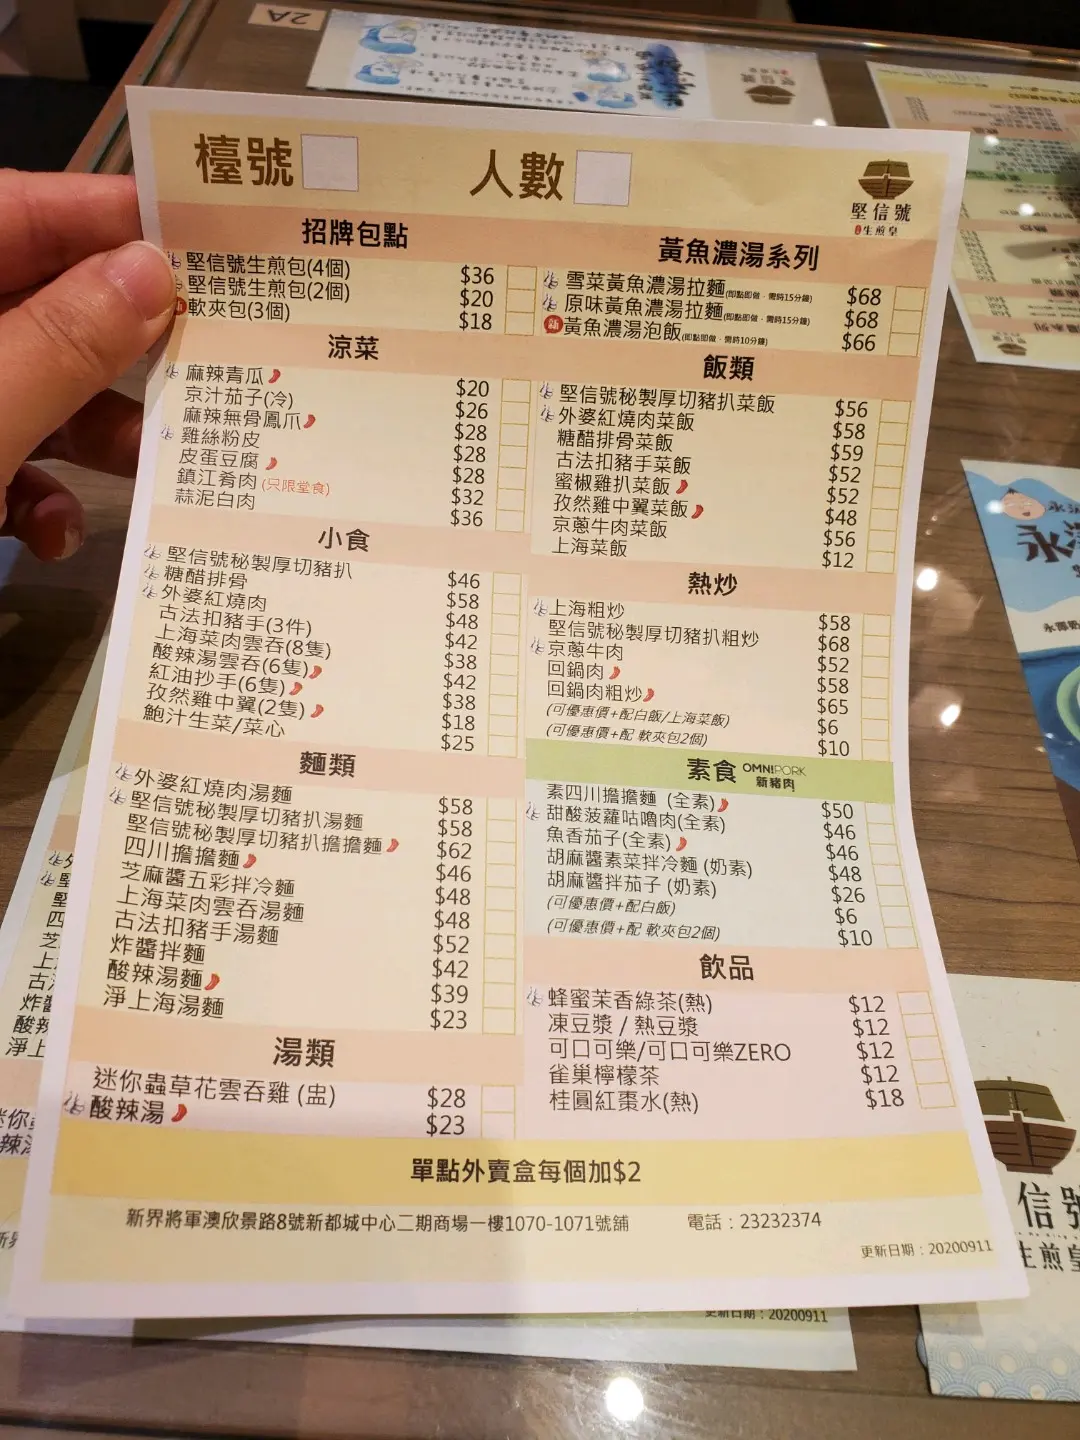 2A
檯號
人數
堅信號
生煎皇
招牌包點
堅信號生煎包(4個) $36
堅信號生煎包(2個) $20
新 軟夾包(3個) $18
涼菜
麻辣青瓜 $20
京汁茄子(冷) $26
麻辣無骨鳳爪 $28
雞絲粉皮 $28
皮蛋豆腐 $28
鎮江肴肉 (只限堂食) $32
蒜泥白肉 $36
小食
堅信號秘製厚切豬扒 $46
糖醋排骨 $58
外婆紅燒肉 $48
古法扣豬手(3件) $42
上海菜肉雲吞(8隻) $38
酸辣湯雲吞(6隻) $42
紅油抄手(6隻) $38
孜然雞中翼(2隻) $18
鮑汁生菜/菜心 $25
麵類
外婆紅燒肉湯麵 $58
堅信號秘製厚切豬扒湯麵 $58
堅信號秘製厚切豬扒擔擔麵 $62
四川擔擔麵 $46
芝麻醬五彩拌冷麵 $48
上海菜肉雲吞湯麵 $48
古法扣豬手湯麵 $52
炸醬拌麵 $42
酸辣湯麵 $39
淨上海湯麵 $23
湯類
迷你蟲草花雲吞雞 (盅) $28
酸辣湯 $23
黃魚濃湯系列
雪菜黃魚濃湯拉麵(即點即做．需時15分鐘) $68
原味黃魚濃湯拉麵(即點即做．需時15分鐘) $68
新 黃魚濃湯泡飯(即點即做．需時10分鐘) $66
飯類
堅信號秘製厚切豬扒菜飯 $56
外婆紅燒肉菜飯 $58
糖醋排骨菜飯 $59
古法扣豬手菜飯 $52
蜜椒雞扒菜飯 $52
孜然雞中翼菜飯 $48
京蔥牛肉菜飯 $56
上海菜飯 $12
熱炒
上海粗炒 $58
堅信號秘製厚切豬扒粗炒 $68
京蔥牛肉 $52
回鍋肉 $58
回鍋肉粗炒 $65
(可優惠價+配白飯/上海菜飯) $6
(可優惠價+配 軟夾包2個) $10
素食 OMNIPORK 新豬肉
素四川擔擔麵 (全素) $50
甜酸菠蘿咕嚕肉(全素) $46
魚香茄子(全素) $46
胡麻醬素菜拌冷麵 (奶素) $48
胡麻醬拌茄子 (奶素) $26
(可優惠價+配白飯) $6
(可優惠價+配 軟夾包2個) $10
飲品
蜂蜜茉香綠茶(熱) $12
凍豆漿 / 熱豆漿 $12
可口可樂/可口可樂ZERO $12
雀巢檸檬茶 $12
桂圓紅棗水(熱) $18
單點外賣盒每個加$2
新界將軍澳欣景路8號新都城中心二期商場一樓1070-1071號舖
電話：23232374
更新日期：20200911
更新日期：20200911
信號
生煎皇